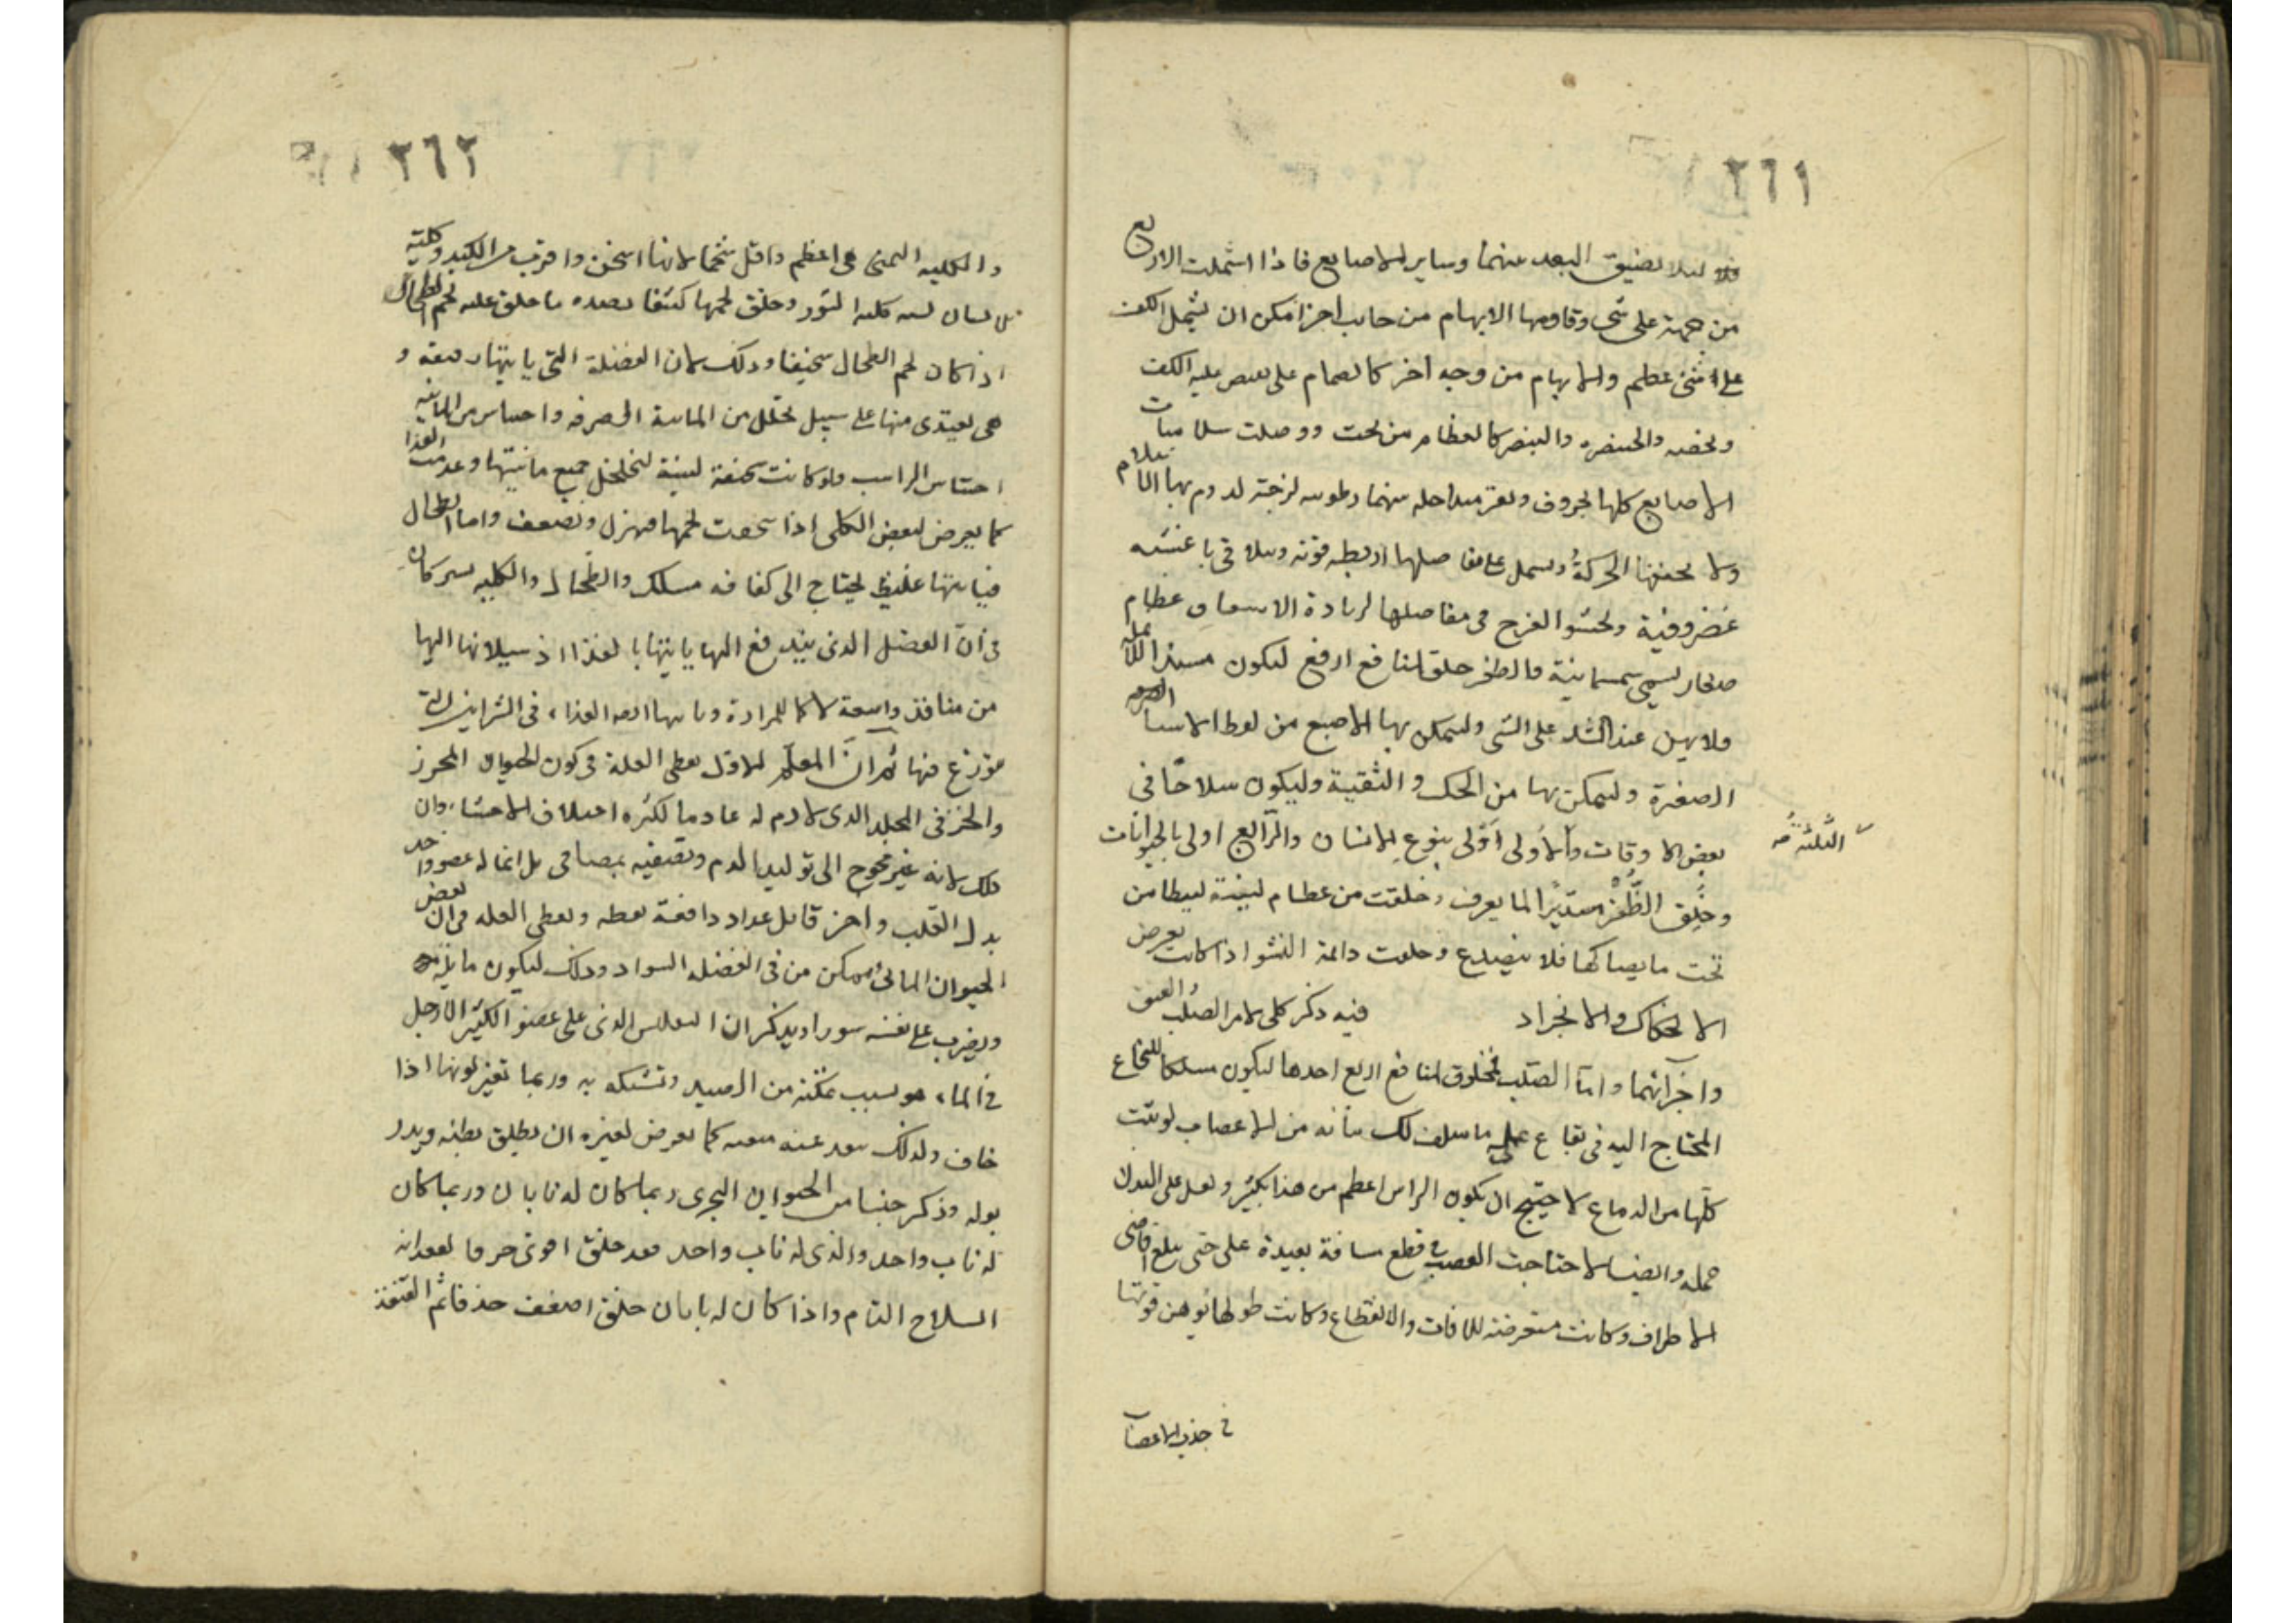 ٢٦١
لئلا يضيق البعد بينهما وساير الاصابع فاذا اشتملت الاربع
من جهة على شى وقاومها الابهام من جانب اخر امكن ان يشمل الكف
على شئ عظيم والابهام من وجه اخر كالصمام على ما يقبض عليه الكف
والخنصر والبنصر كالغطا من تحت ووصلت سلاميات
الاصابع كلها بحروف ونقر متداخلة بينهما رطوبة لزجة
ولا تجففها الحركة ويشمل على مفاصلها اربطة قوية وتتلاقى باغشية
غضروفية ويحشو الفرج فى مفاصلها لزيادة الاستيثاق عظام
صغار تسمى سمسمانية والظفر خلق لمنافع اربع ليكون
فلا يهن عند الشد على الشى وليتمكن بها الاصبع من لقط الاشيا
الصغيرة وليتمكن بها من الحك والتنقية وليكون سلاحًا فى
بعض الاوقات والاولى اولى بنوع الانسان والرابع اولى بالحيوانات
الثلثة
وخلق الظفر مستديرا لما يعرف وخلقت من عظام لينة ليتطامن
تحت ما يصاكها فلا ينصدع وخلقت دائمة النشو اذ كانت يعرض
الانحكاك والانجراد فيه ذكر كلى لامر الصلب العنق
واجزائهما واما الصلب فمخلوق لمنافع اربع احدها ليكون مسلكا للنخاع
المحتاج اليه فى بقاع على ما سلف لك بيانه من الاعصاب لو نبتت
كلها من الدماغ لاحتيج ان يكون الراس اعظم من هذا بكثير ولثقل على البدن
حمله وايضا لاحتاجت العصب فى قطع مسافة بعيدة على حتى يبلغ اقاصى
الاطراف وكانت متعرضة للافات والانقطاع وكانت طولها يوهن قوتها
فى جذب الاعضا
٢٦٢
والكلية اليمنى هى اعظم واقل شحما لانها اسخن واقرب من الكبد وكلية
الانسان تشبه كلية الثور وخلق لحمها كثيفا بضده ما خلق عليه لحم الطحال
اذ كان لحم الطحال سخيفا وذلك لان الفضلة التى ياتيها رقيقة و
هى تغتذى منها على سبيل تحلل من المائية الصرفة واحتباس من المائية
احتباس الراسب ولو كانت سخيفة لينة لتخلخل جميع مائيتها وعدمت الغذا
كما يعرض لبعض الكلى اذا سخفت لحمها فهزل وتضعف واما الطحال
فياتيها غليظ يحتاج الى كثافة مسلك والطحال والكلية يشتركان
فى ان الفضل الذى يندفع اليها ياتيها بالغذا اذ سيلانها اليها
من منافذ واسعة لا كالمرارة وياتيها الغذاء فى الشرايين التى
موزع فيها ثم ان المعلم الاول يعطى العلة فى كون الحيوان المحرز
والخزفى الجلد الذى لا دم له عادما لكثرة اختلاف الاحشاء وان
ذلك لانه غير محوج الى توليد الدم وتصفيه بمصافى بل انما له عضو واحد
بدل القلب واخر قابل عواد دافعة ويعطى العلة فى ان بعض
الحيوان المائى من فى الفضله السواد وذلك ليكون ما يليه
ويضرب على نفسه سورا ويذكر ان الذى على عضو الكثير الارجل
فى الماء هو لسبب تمكنه من الصيد وتشبكه به وربما تغير لونها اذا
خاف ولذلك كما يعرض لغيره ان يطلق بطنه ويدر
بوله وذكر جنسا من الحيوان البحرى ربما كان له نابان وربما كان
له ناب واحد والذى له ناب واحد فقد خلق اقوى لفقدانه
السلاح التام واذا كان له نابان خلق اضعف